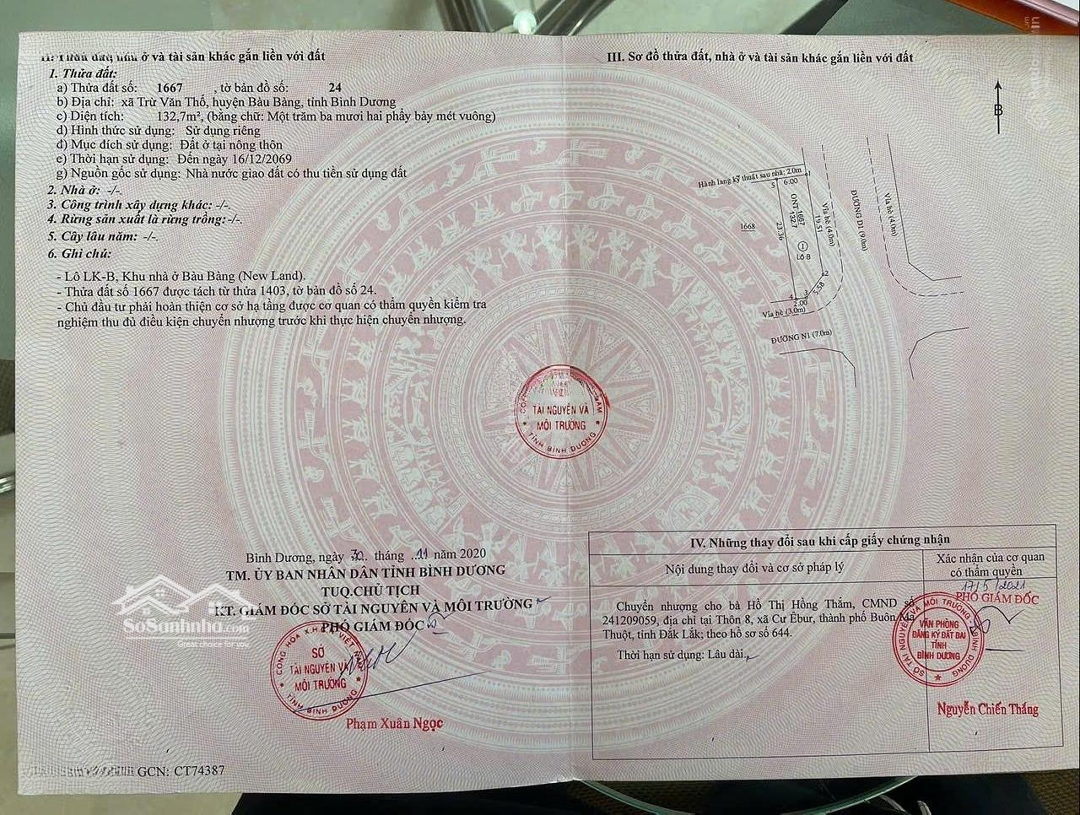 ở và tài sản khác gắn liền với đất
1. Thửa đất:
a) Thửa đất số: 1667 , tờ bản đồ số: 24
b) Địa chỉ: xã Trừ Văn Thố, huyện Bàu Bàng, tỉnh Bình Dương
c) Diện tích: 132,7m², (bằng chữ: Một trăm ba mươi hai phẩy bảy mét vuông)
d) Hình thức sử dụng: Sử dụng riêng
đ) Mục đích sử dụng: Đất ở tại nông thôn
e) Thời hạn sử dụng: Đến ngày 16/12/2069
g) Nguồn gốc sử dụng: Nhà nước giao đất có thu tiền sử dụng đất
2. Nhà ở: -/-.
3. Công trình xây dựng khác: -/-.
4. Rừng sản xuất là rừng trồng: -/-.
5. Cây lâu năm: -/-.
6. Ghi chú:
- Lô LK-B, Khu nhà ở Bàu Bàng (New Land).
- Thửa đất số 1667 được tách từ thửa 1403, tờ bản đồ số 24.
- Chủ đầu tư phải hoàn thiện cơ sở hạ tầng được cơ quan có thẩm quyền kiểm tra
nghiệm thu đủ điều kiện chuyển nhượng trước khi thực hiện chuyển nhượng.
TÀI NGUYÊN VÀ
MÔI TRƯỜNG
TỈNH BÌNH DƯƠNG
Bình Dương, ngày 30 tháng .11 năm 2020
TM. ỦY BAN NHÂN DÂN TỈNH BÌNH DƯƠNG
TUQ.CHỦ TỊCH
KT. GIÁM ĐỐC SỞ TÀI NGUYÊN VÀ MÔI TRƯỜNG
PHÓ GIÁM ĐỐC
SoSanhnha.com
CỘNG HÒA X.H.C.N VIỆT NAM
SỞ
TÀI NGUYÊN VÀ
MÔI TRƯỜNG
TỈNH BÌNH DƯƠNG
Phạm Xuân Ngọc
GCN: CT74387
III. Sơ đồ thửa đất, nhà ở và tài sản khác gắn liền với đất
B
Hành lang kỹ thuật sau nhà; 2.0m
5
6.00
1
1668
23.36
ONT
1667
132.7
19.51
Vỉa hè (4.0m)
ĐƯỜNG D1 (9.0m)
Vỉa hè (4.0m)
1
Lô B
2
5.58
4
3
2.00
Vỉa hè (3.0m)
ĐƯỜNG N1 (7.0m)
IV. Những thay đổi sau khi cấp giấy chứng nhận
Nội dung thay đổi và cơ sở pháp lý
Xác nhận của cơ quan
có thẩm quyền
17/5/2021
PHÓ GIÁM ĐỐC
Chuyển nhượng cho bà Hồ Thị Hồng Thắm, CMND số
241209059, địa chỉ tại Thôn 8, xã Cư Êbur, thành phố Buôn Ma
Thuột, tỉnh Đắk Lắk; theo hồ sơ số 644.
Thời hạn sử dụng: Lâu dài.
SỞ TÀI NGUYÊN VÀ MÔI TRƯỜNG BÌNH DƯƠNG
VĂN PHÒNG
ĐĂNG KÝ ĐẤT ĐAI
TỈNH
BÌNH DƯƠNG
Nguyễn Chiến Thắng